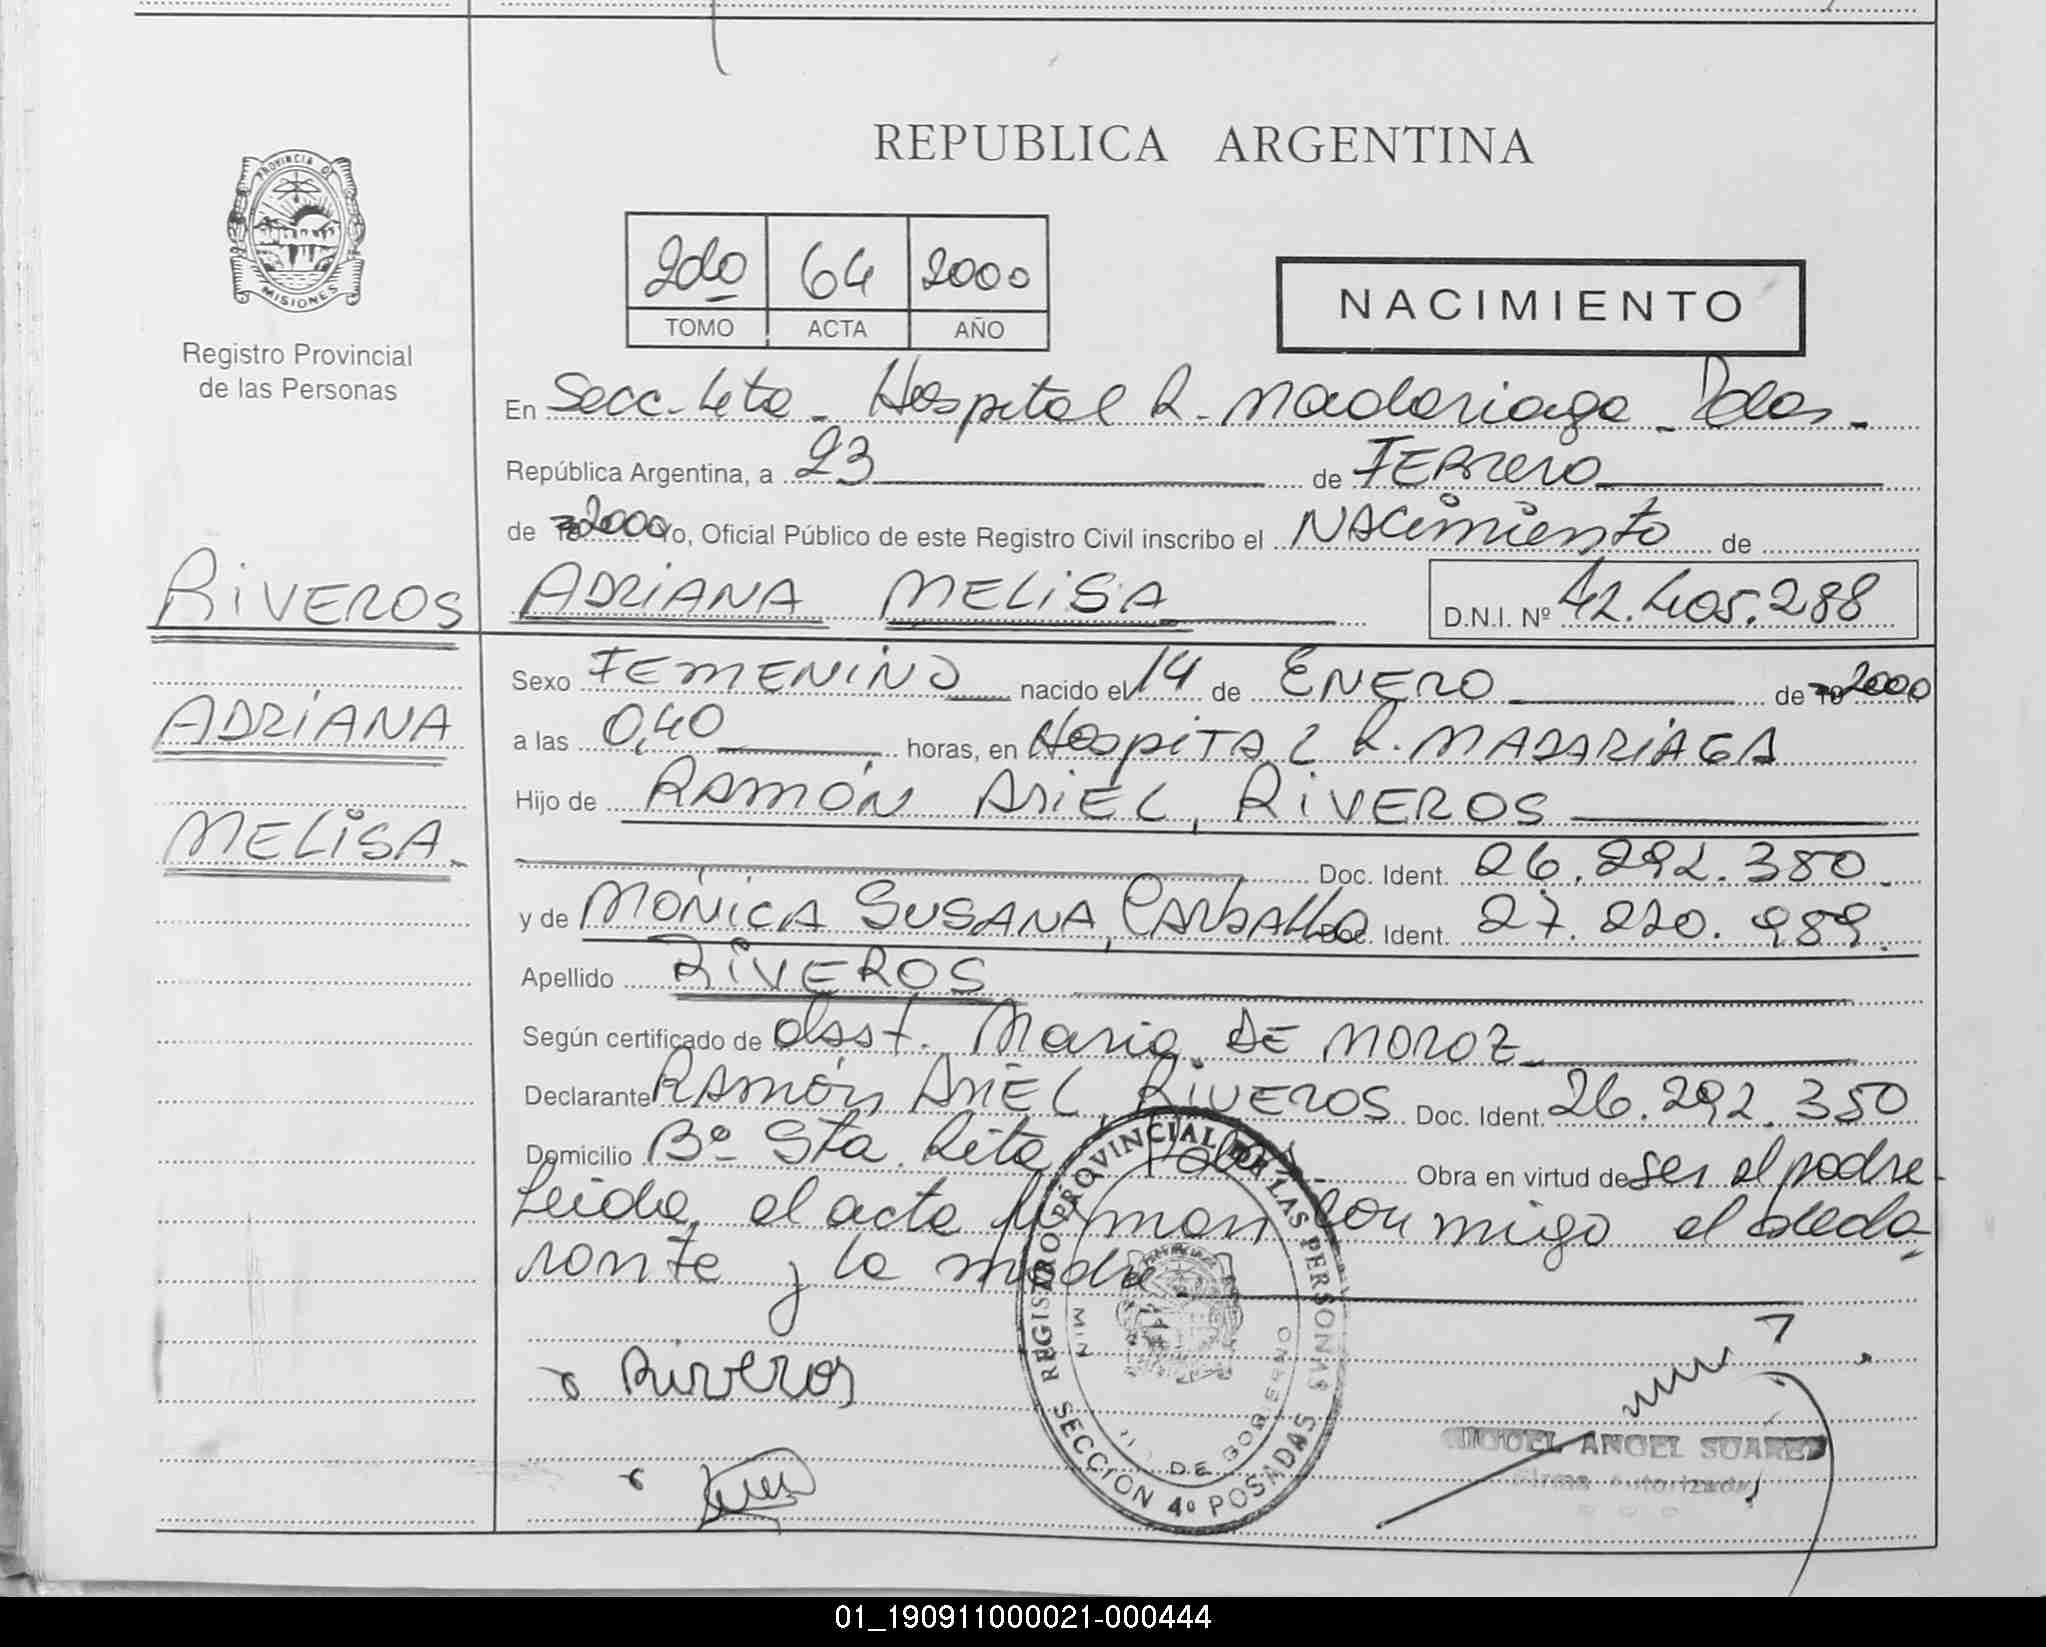 REPUBLICA ARGENTINA
PROVINCIA DE
MISIONES
Registro Provincial
de las Personas
2do 64 2000
TOMO ACTA AÑO
NACIMIENTO
En Secc. 4ta - Hospital R. Madariaga - Pdas -
República Argentina, a 23 de FEBrero
de 2000 Yo, Oficial Público de este Registro Civil inscribo el NACimiento de
RIVEROS ADRIANA MELISA D.N.I. Nº 42.405.288
Sexo FEMENINO nacido el 14 de ENERO de 2000
ADRIANA
a las 0,40 horas, en HOSPITAL R. MADARIAGA
Hijo de RAMÓN ARIEL, RIVEROS
MELISA
Doc. Ident. 26.292.350
y de MÓNICA SUSANA, CARBALLO Doc. Ident. 27.220.989.
Apellido RIVEROS
Según certificado de obst. Maria DE MOROZ
Declarante RAMÓN ARIEL, RIVEROS Doc. Ident. 26.292.350
Domicilio Bº Sta. Rita Pdas Obra en virtud de ser el padre
Leida el acta firman conmigo el decla
rante y la madre
Riveros
REGISTRO PROVINCIAL DE LAS PERSONAS
MIN DE GOBIERNO
SECCION 4º POSADAS
MIGUEL ANGEL SUAREZ
Firma Autorizada
01_190911000021-000444